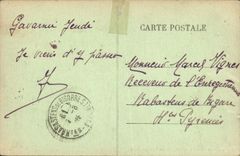 CARTE POSTALE
Gavarnie Jeudi
Je viens d'y passer
Monsieur Marcel Vignes
Receveur de l'Enregistrement
Rabastens de Bigorre
Htes Pyrénées